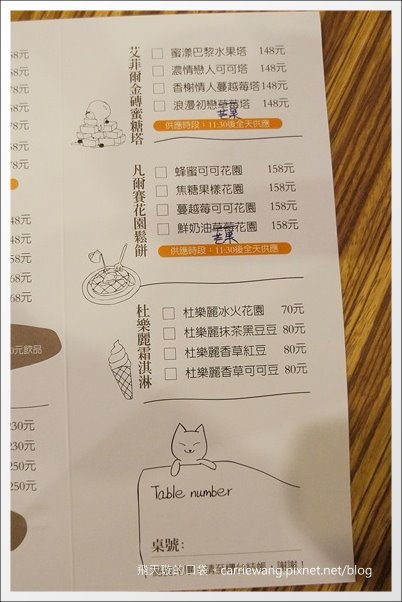 58元
58元
58元
78元
78元
78元
78元
48元
48元
68元
68元
68元
0元飲品
230元
230元
250元
250元
艾菲爾金磚蜜糖塔
蜜漾巴黎水果塔 148元
濃情戀人可可塔 148元
香榭情人蔓越莓塔 148元
浪漫初戀草莓塔 148元
芒果
供應時段：11:30後全天供應
凡爾賽花園鬆餅
蜂蜜可可花園 158元
焦糖果樣花園 158元
蔓越莓可可花園 158元
鮮奶油草莓花園 158元
芒果
供應時段：11:30後全天供應
杜樂麗霜淇淋
杜樂麗冰火花園 70元
杜樂麗抹茶黑豆豆 80元
杜樂麗香草紅豆 80元
杜樂麗香草可可豆 80元
Table number
桌號:
飛天璇的口袋 carriewang.pixnet.net/blog
謝謝！